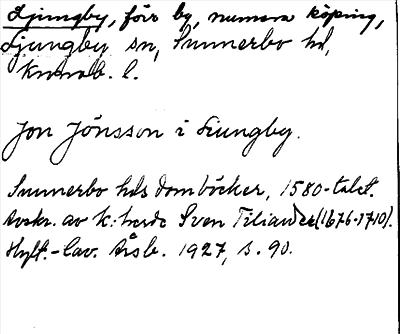 Ljungby, förr by, numera köping,
Ljungby sn, Sunnerbo hd,
Kronob. l.
Jon Jönsson i Liungby.
Sunnerbo hds domböcker, 1580-talet.
Avskr. av k.-herde Sven Tiliander (1676-1710).
Hylt.-Cav. Årsb. 1927, s. 90.